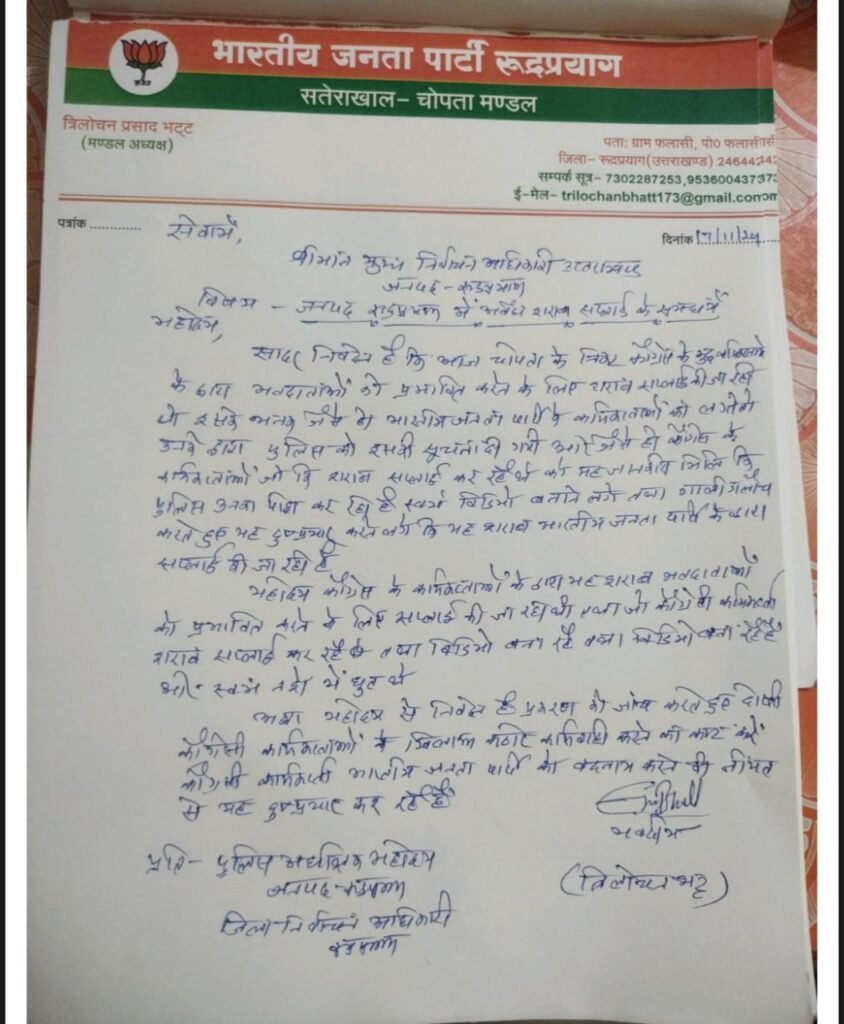 भारतीय जनता पार्टी रूद्रप्रयाग
सतेराखाल- चोपता मण्डल
त्रिलोचन प्रसाद भट्ट
(मण्डल अध्यक्ष)
पता: ग्राम फलासी, पो0 फलासी
जिला- रूद्रप्रयाग(उत्तराखण्ड) 246442
सम्पर्क सूत्र- 7302287253,9536004373
ई-मेल- trilochanbhatt173@gmail.com
पत्रांक ............
दिनांक 17/11/24
सेवामें,
श्रीमान मुख्य निर्वाचन अधिकारी उत्तराखण्ड
जनपद - रूद्रप्रयाग
विषय - जनपद रूद्रप्रयाग में अवैध शराब सप्लाई के सम्बन्ध में
महोदय,
सादर निवेदन है कि आज चोपता के निकट कांग्रेस के कुछ
के द्वारा मतदाताओं को प्रभावित करने के लिए शराब सप्लाई की जा रही
थी इसकी भनक जैसे ही भारतीय जनता पार्टी के कार्यकर्ताओं को लगी तो
उनके द्वारा पुलिस को इसकी सूचना दी गयी और जैसे ही कांग्रेस के
कार्यकर्ताओं जो कि शराब सप्लाई कर रहे थे को यह जानकारी मिली कि
पुलिस उनका पीछा कर रही है स्वयं विडियो बनाने लगे तथा गाली गलौच
करते हुए यह दुष्प्रचार करने लगे कि यह शराब भारतीय जनता पार्टी के द्वारा
सप्लाई की जा रही है
महोदय कांग्रेस के कार्यकर्ताओं के द्वारा यह शराब मतदाताओं
को प्रभावित करने के लिए सप्लाई की जा रही थी तथा जो कांग्रेसी कार्यकर्ता
शराब सप्लाई कर रहे थे तथा विडियो बना रहे तथा विडियो बना रहे है
भी स्वयं नशे में धुत थे
अतः महोदय से निवेदन है प्रकरण की जांच करते हुए दोषी
कांग्रेसी कार्यकर्ताओं के खिलाफ कठोर कार्यवाही करने की कष्ट करें
कांग्रेसी कार्यकर्ता भारतीय जनता पार्टी को बदनाम करने की नीयत
से यह दुष्प्रचार कर रहे हैं
भवदीय
(त्रिलोचन भट्ट)
प्रति - पुलिस अधीक्षक महोदय
जनपद - रूद्रप्रयाग
जिला निर्वाचन अधिकारी
रूद्रप्रयाग